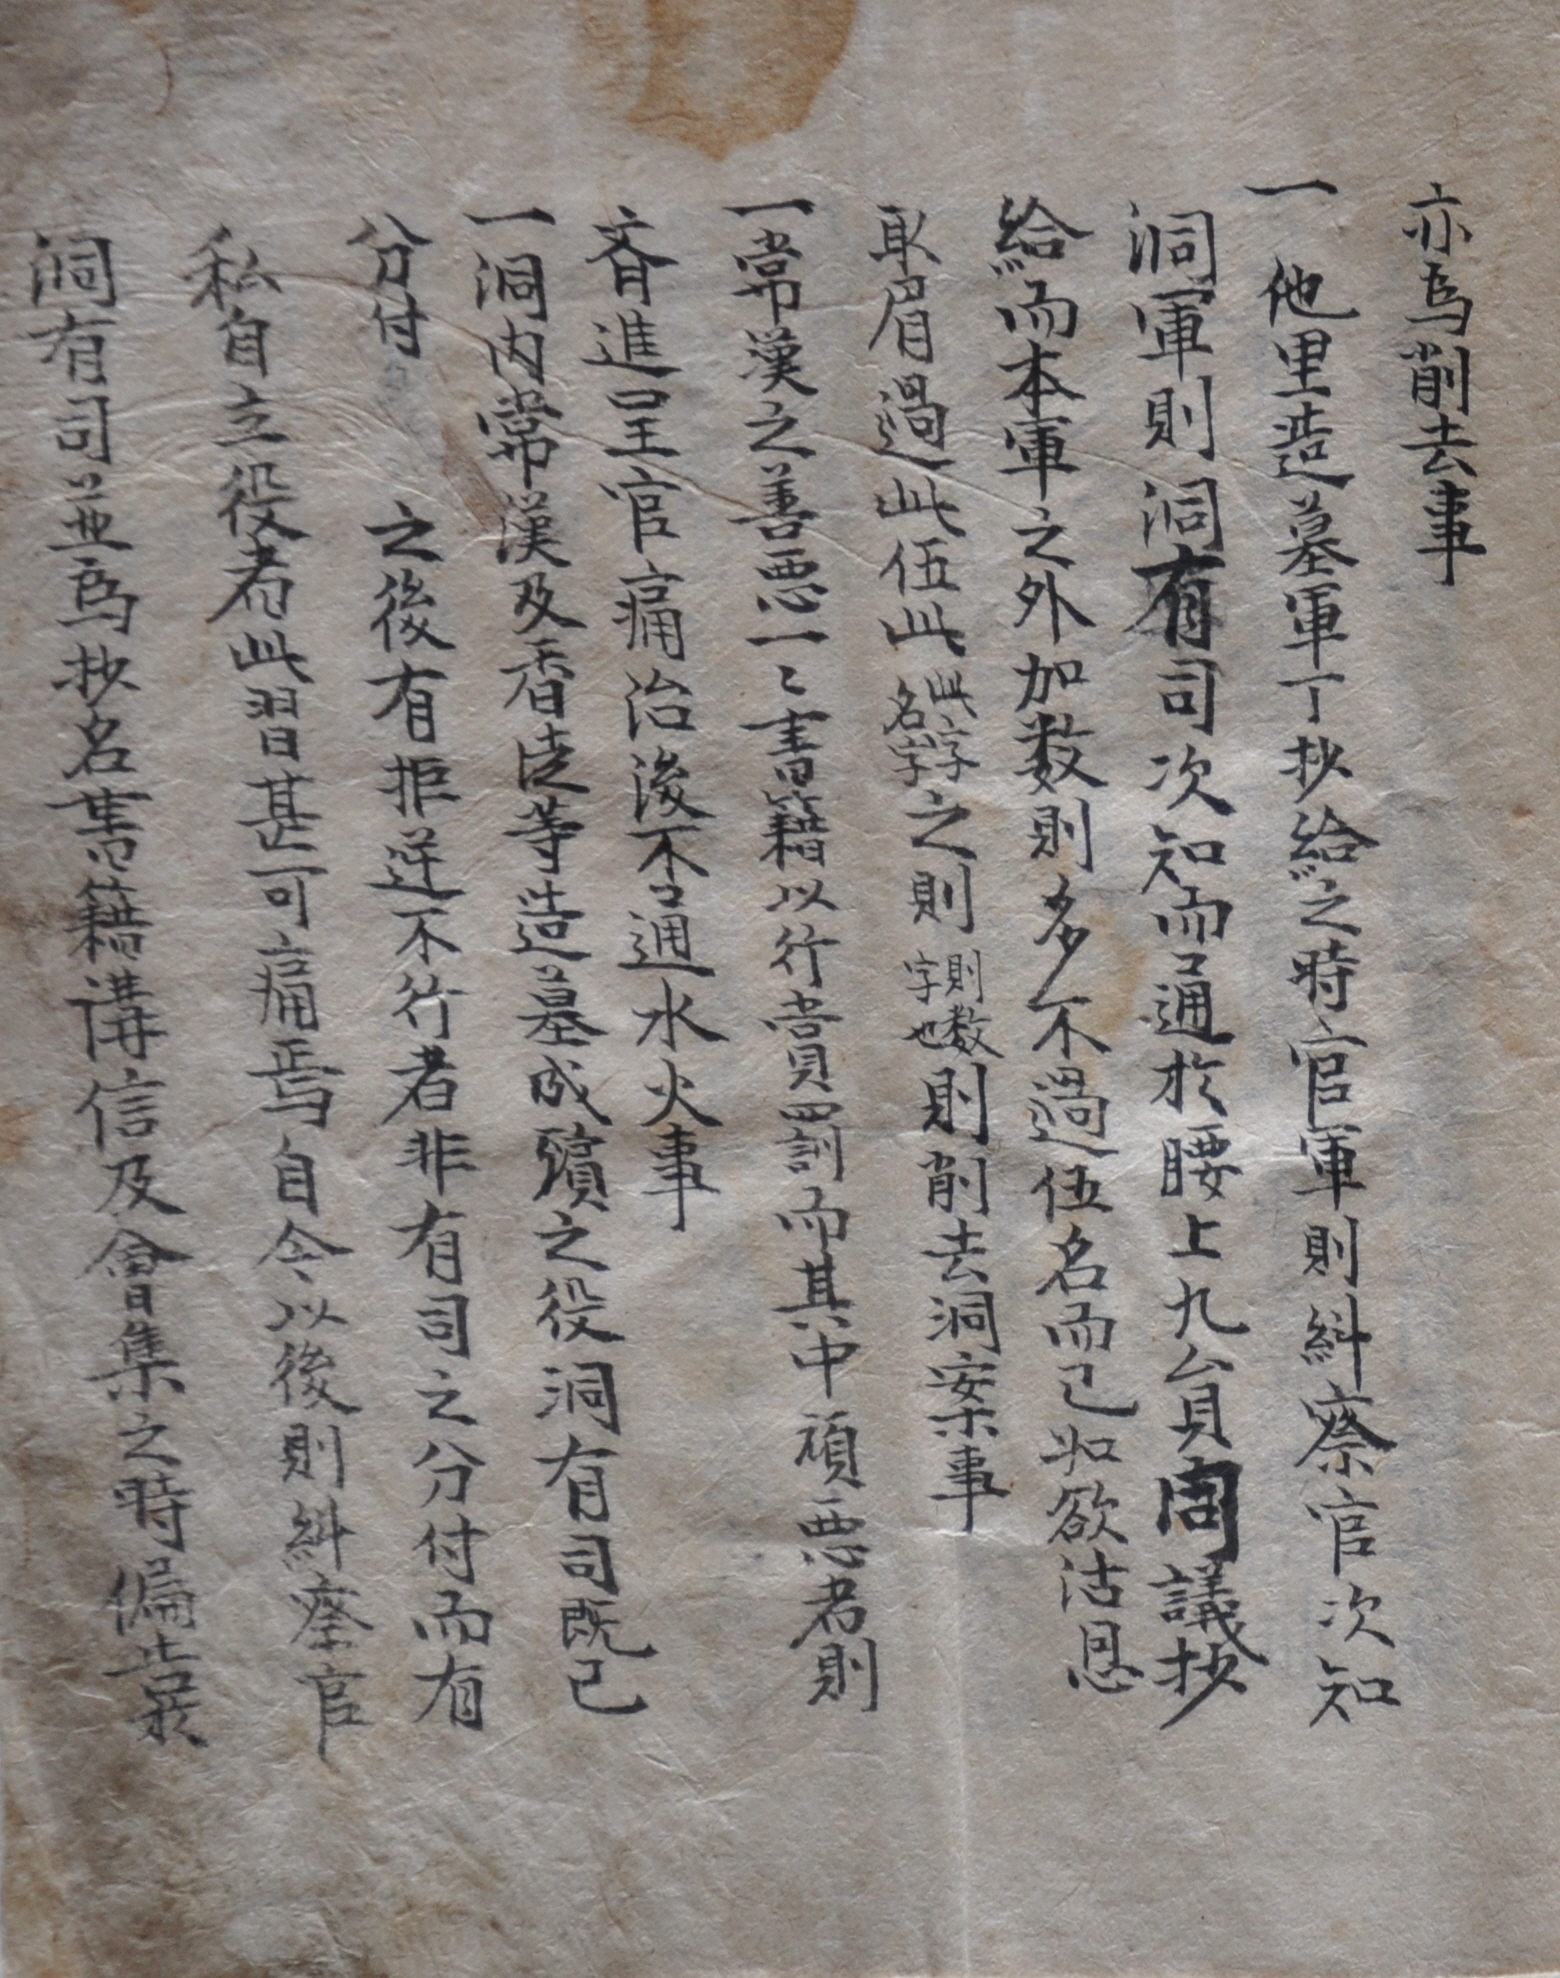 亦為削去事
一 他里造墓軍丁抄給之時官軍則糾察官次知
洞軍則洞有司次知而通於腰上九台員同議抄
給而本軍之外加数則多不過伍名而已如欲沽恩
取眉過此伍此此字名字之則則数字也則削去洞案事
一常漢之善悪一〻書籍以行賞罰而其中頑悪者則
齊進呈官痛治後不通水火事
一洞內常漢及香徒等造墓成殯之役洞有司既已
分付 之後有拒逆不行者非有司之分付而有
私自立役者此習甚可痛焉自今以後則糾察官
洞有司並為抄名書籍講信及會集之時徧告嚴